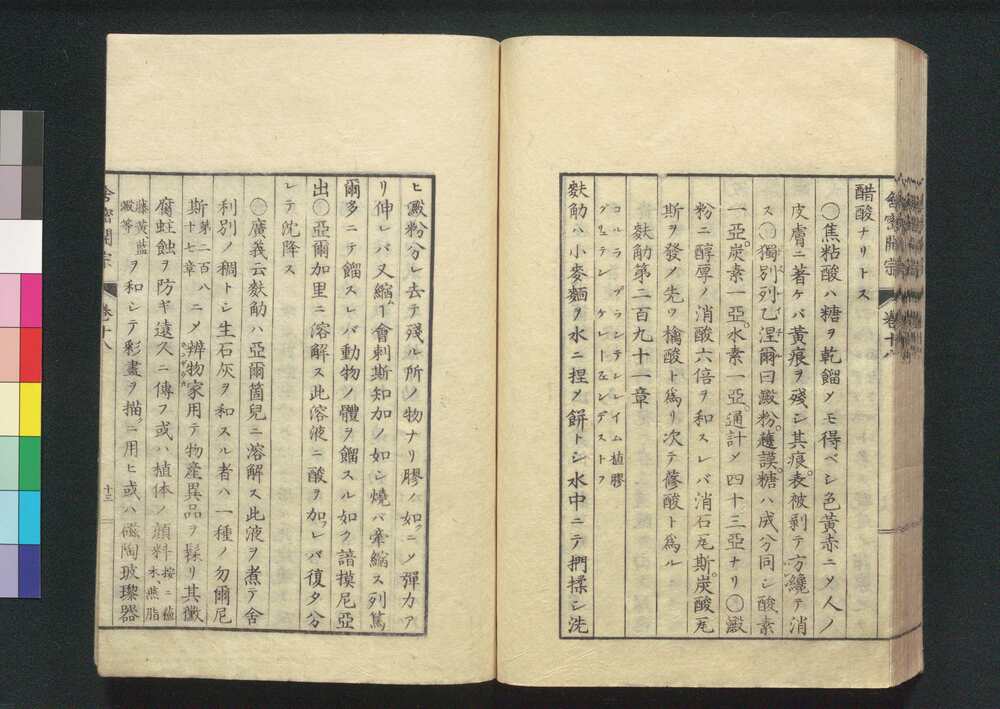 舍密開宗 卷十八
醋酸ナリトス
◯焦粘酸ハ糖ヲ乾餾ソモ得ベシ色黄赤ニソ人ノ
皮膚ニ著ケバ黄痕ヲ殘シ其痕表被剥テ方纔テ消
ス◯獨別列乙涅爾曰澱粉護謨糖ハ成分同シ酸素
一亞炭素一亞水素一亞通計ソ四十三亞ナリ◯澱
粉ニ醇厚ノ消酸六倍ヲ和スレバ消石瓦斯炭酸瓦
斯ヲ發ノ先ツ檎酸ト爲リ次テ蓚酸ト爲ル
麩觔第二百九十一章
コルラ プランテレイム植膠
グリュテン ケレーエンデストフ
麩觔ハ小麥麺ヲ水ニ捏ソ餅トシ水中ニテ捫揉シ洗
ヒ澱粉分レ去テ殘ル所ノ物ナリ膠ノ如ニソ彈力ア
リ伸レバ又縮ム會刺斯知加ノ如シ燒バ牽縮ス列篤
爾多ニテ餾スレバ動物ノ體ヲ餾スル如ク諳摸尼亞
出◯亞爾加里ニ溶解ス此溶液ニ酸ヲ加レバ復タ分
レテ沈降ス
◯廣義云麩觔ハ亞爾箇兒ニ溶解ス此液ヲ煮テ舍
利別ノ稠トシ生石灰ヲ和スル者ハ一種ノ勿爾尼
斯第二百八十七章ニソ辨物家用テ物産異品ヲ髹リ其黴
腐蛀蝕ヲ防ギ遠久ニ傳フ或ハ植体ノ顔料按ニ蘊木、燕脂
藤黄、藍澱等ヲ和シテ彩畫ヲ描ニ用ヒ或ハ磁陶玻瓈器
舍密開宗 卷十八 十三